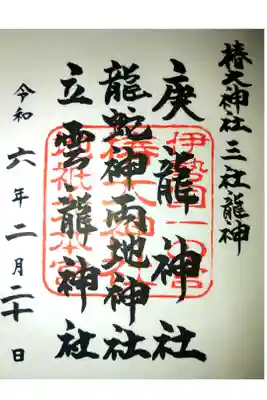 椿大神社 三社龍神
庚龍神社
龍蛇神地神社
立雲龍神社
令和六年二月二十日
伊勢国一の宮
椿大神社